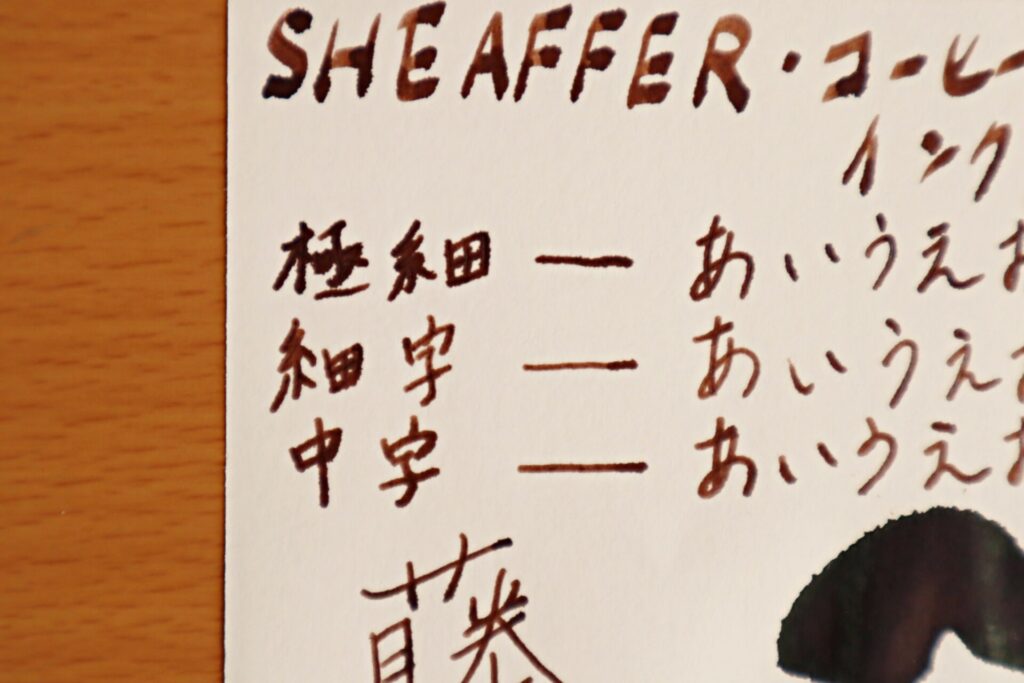 SHEAFFER・コーヒー
インク
極細 — あいうえお
細字 — あいうえお
中字 — あいうえお
藤